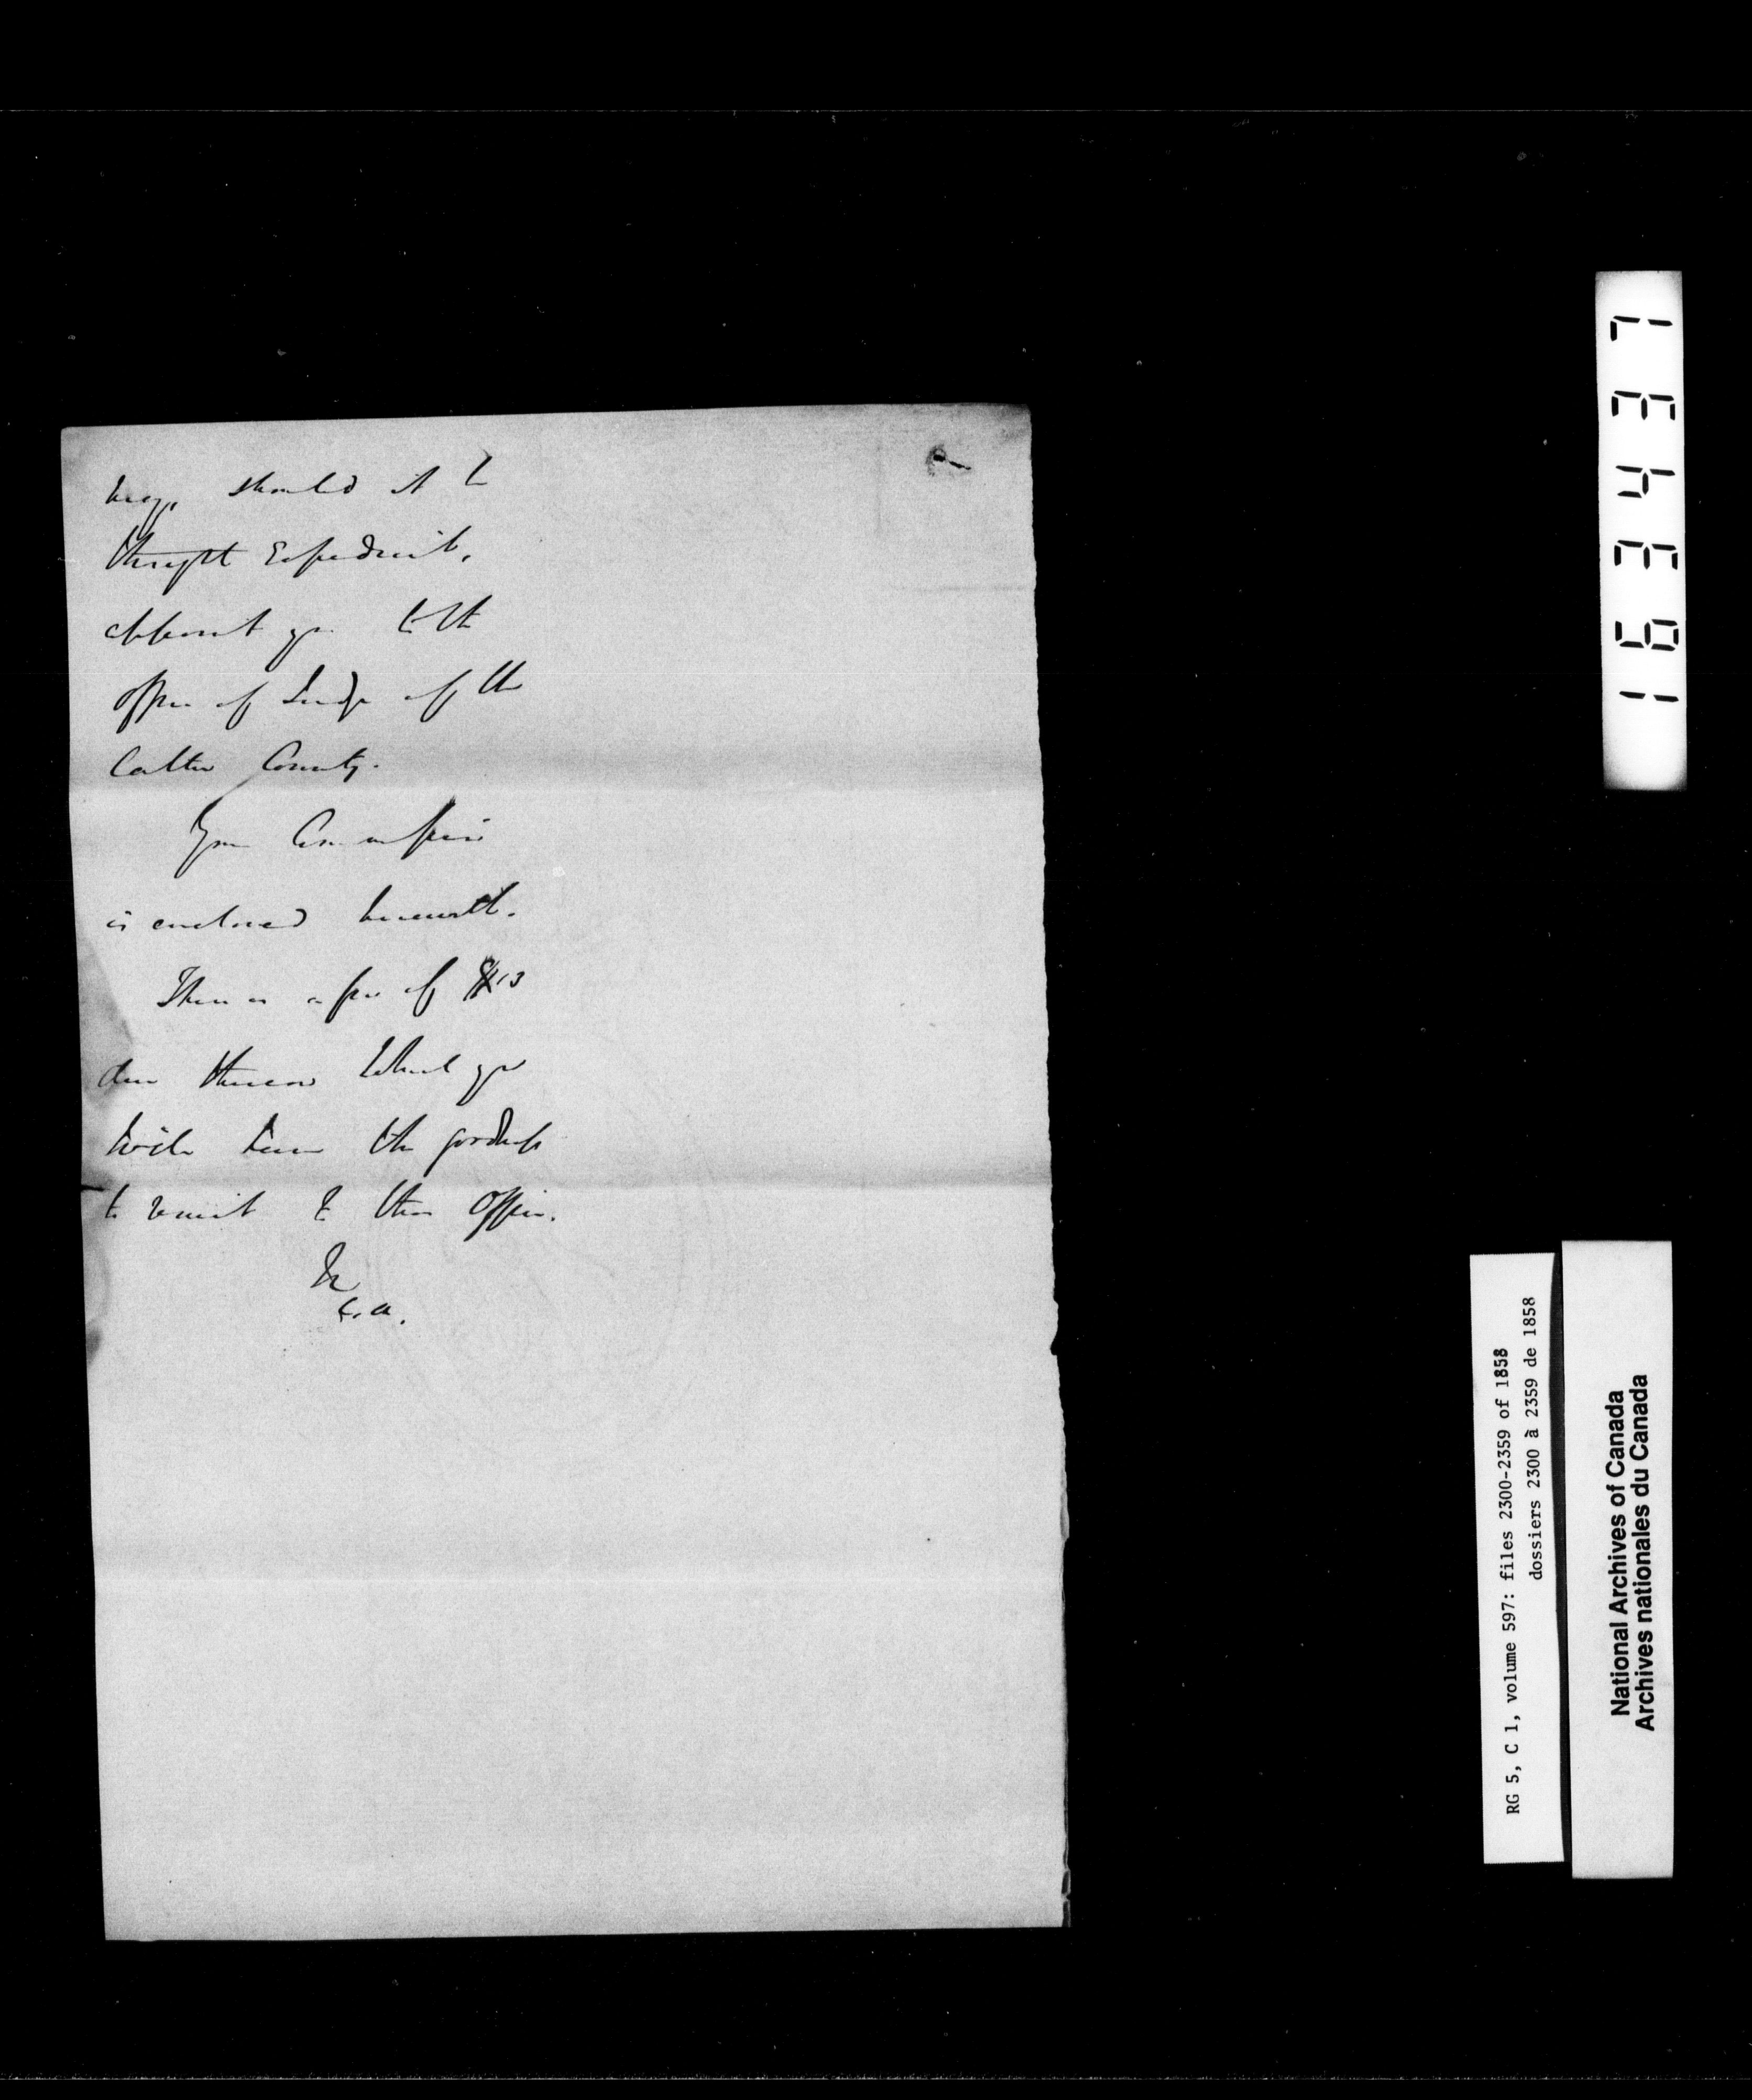 may, should it be
thought Expedient,
appoint you to the
office of Judge of the
latter County.
Your Commission
is enclosed herewith.
There is a fee of $13
due thereon which you
will have the goodness
to remit to this Office.
E. A.
163437
RG 5, C 1, volume 597: files 2300-2359 of 1858
dossiers 2300 à 2359 de 1858
National Archives of Canada
Archives nationales du Canada